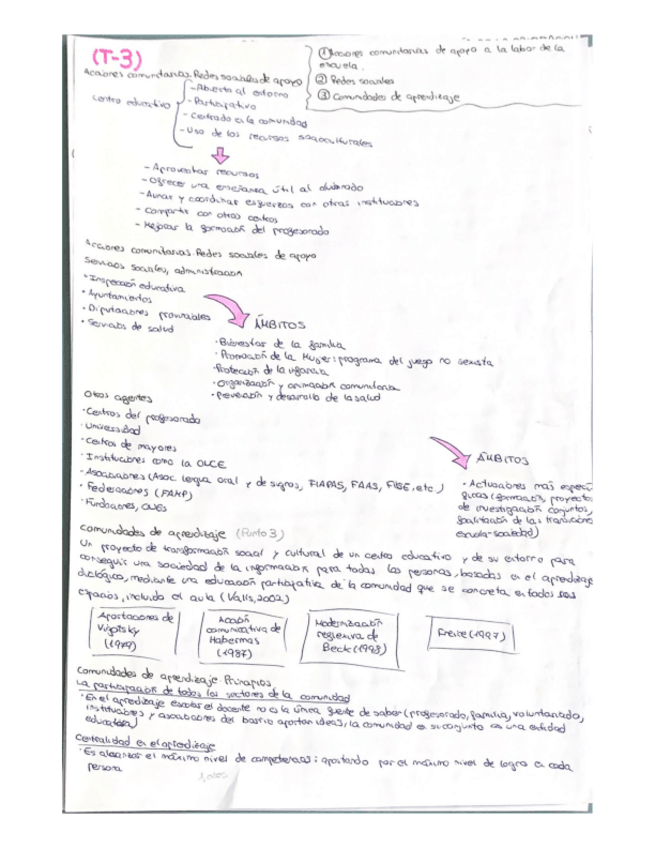 (T-3)
① Acciones comunitarias de apoyo a la labor de la
escuela.
② Redes sociales
③ Comunidades de aprendizaje
Acciones comunitarias. Redes sociales de apoyo
Centro educativo
- Abierto al entorno
- Participativo
- Centrado en la comunidad
- Uso de los recursos socioculturales
- Aprovechar recursos
- Ofrecer una enseñanza útil al alumnado
- Aunar y coordinar esfuerzos con otras instituciones
- Compartir con otros centros
- Mejorar la formación del profesorado
Acciones comunitarias. Redes sociales de apoyo
Servicios sociales, administración
• Inspección educativa
• Ayuntamientos
• Diputaciones provinciales
• Servicios de salud
ÁMBITOS
• Bienestar de la familia
• Promoción de la Mujer: programa del juego no sexista
• Protección de la infancia
• Organización y animación comunitaria
• Prevención y desarrollo de la salud
Otros agentes
• Centros del profesorado
• Universidad
• Centros de mayores
• Instituciones como la ONCE
• Asociaciones (Asoc. lengua oral y de signos, FIAPAS, FAAS, FISE, etc.)
• Federaciones (FAMP)
• Fundaciones, ONGs
ÁMBITOS
• Actuaciones más especí
ficas (formación, proyectos
de investigación conjuntos,
facilitación de las transiciones
escuela-sociedad)
Comunidades de aprendizaje (Punto 3)
Un proyecto de transformación social y cultural de un centro educativo y de su entorno para
conseguir una sociedad de la información para todas las personas, basadas en el aprendizaje
dialógico, mediante una educación participativa de la comunidad que se concreta en todos sus
espacios, incluido el aula (Valls, 2002)
Aportaciones de
Vygotsky
(1979)
Acción
comunicativa de
Habermas
(1987)
Modernización
reflexiva de
Beck (1998)
Freire (1997)
Comunidades de aprendizaje. Principios
La participación de todos los sectores de la comunidad
• En el aprendizaje escolar el docente no es la única fuente de saber (profesorado, familia, voluntariado,
instituciones y asociaciones del barrio aportan ideas, la comunidad en su conjunto es una entidad
educadora)
Centralidad en el aprendizaje
• Es alcanzar el máximo nivel de competencias: apostando por el máximo nivel de logro en cada
persona